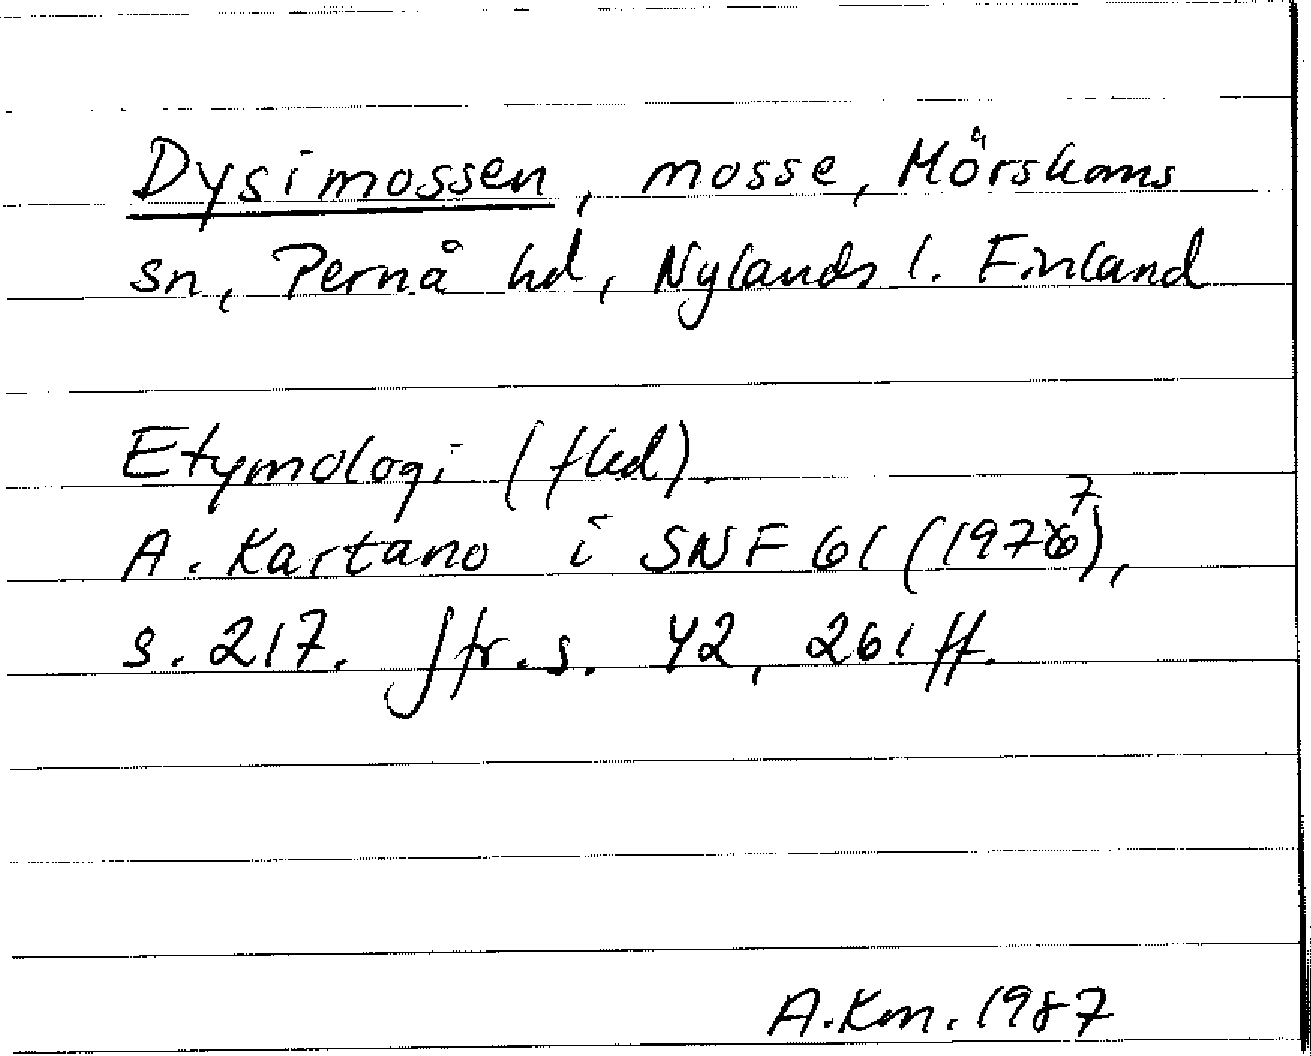 Dysimossen, mosse, Mörskoms
sn, Pernå hd, Nylands l. Finland
Etymologi (fled).
A. Kartano i SNF 61 (1977),
s. 217. Jfr. s. 42, 261 ff.
A.Km. 1987